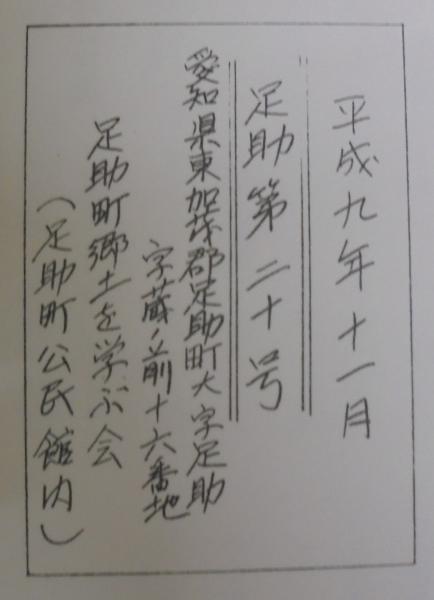 平成九年十一月
足助第二十号
愛知県東加茂郡足助町大字足助
字蔵ノ前十六番地
足助町郷土を学ぶ会
（足助町公民館内）